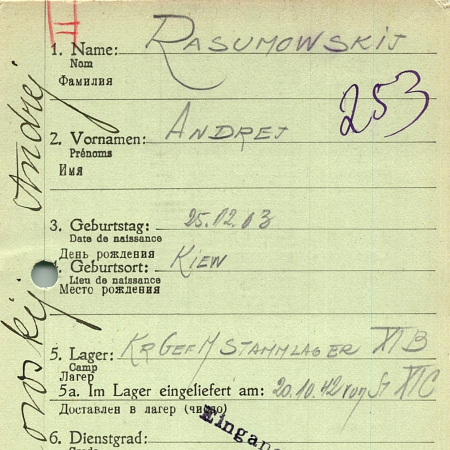 II
1. Name: RASUMOWSKIJ
Nom
Фамилия
253
2. Vornamen: ANDREJ
Prénoms
Имя
3. Geburtstag: 25.12.03
Date de naissance
День рождения
4. Geburtsort: KIEW
Lieu de naissance
Место рождения
5. Lager: KRGEFM STAMMLAGER XI B
Camp
Лагерь
5a. Im Lager eingeliefert am: 20.10.42 von St XI C
Доставлен в лагерь (число)
6. Dienstgrad:
Andrej